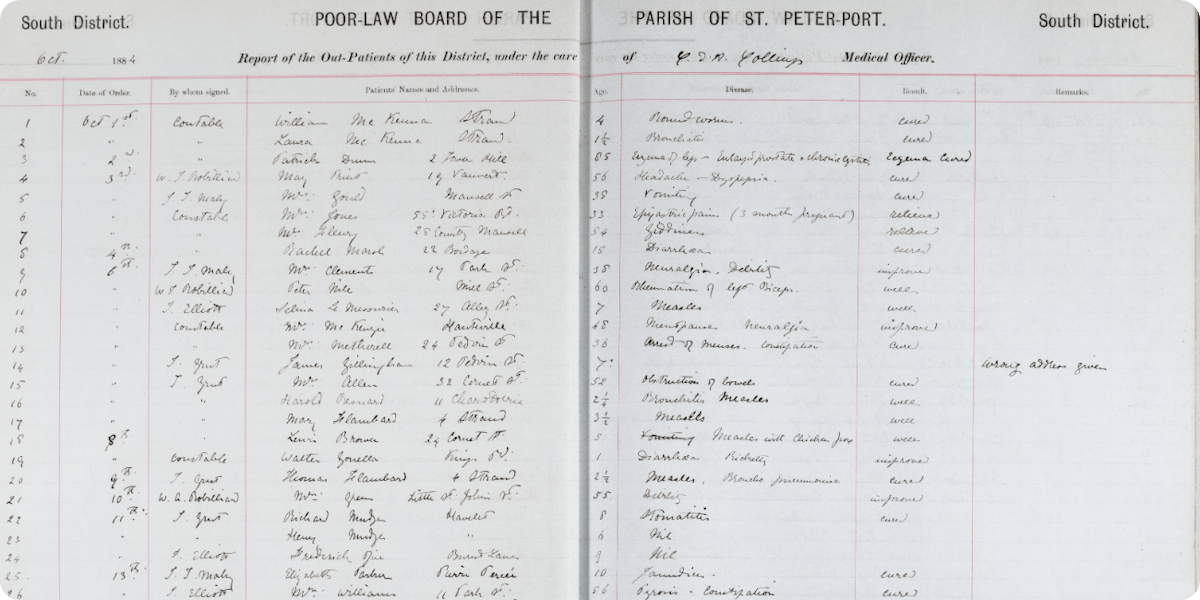 South District. POOR-LAW BOARD OF THE PARISH OF ST. PETER-PORT. South District.
Oct. 1884 Report of the Out-Patients of this District, under the care of Medical Officer.
No. Date of Order. By whom signed. Patients' Names and Addresses. Age. Disease. Result. Remarks.
1 Oct 1st Constable William Mc Kenna Strand 4 Round worms. cured
2 " " Laura Mc Kenna Strand 1½ Bronchitis cured
3 2nd " Patrick Dunn 2 Hill 85 Eczema of legs - Enlarged prostate & chronic cystitis Eczema cured
4 3rd W. T. Robilliard May 19 Vauvert 56 Headache - Dyspepsia. cure
5 " J. T. Maly Mrs Gould Mansell St 38 Vomiting cure
6 " Constable Mrs Jones 55 Victoria Rd. 33 Epigastric pains (3 months pregnant) relieve
7 " " Mrs Fleury 28 County Mansell 54 Giddiness relieve
8 4th " Rachel Marsh 22 Bordage 15 Diarrhœa cured
9 6th J. T. Maly Mrs Clements 17 Park St. 38 Neuralgia. Debility improve
10 " W. T. Robilliard Peter Mill St. 60 Rheumatism of left Biceps. well
11 " J. Elliott Selina Le Messurier 27 Alley St. 7 Measles well
12 " Constable Mrs Mc Kenzie Hauteville 48 Menopause Neuralgia improved
13 " " Mrs Metherell 24 Pedvin St. 36 Arrest of Menses. Constipation cure
14 " J. Grut James Gillingham 12 Pedvin St 7 wrong address given
15 " J. Grut Mrs Allen 32 Cornet St. 52 Obstruction of bowels cured
16 " Harold Besnard 11 Charroterie 2¼ Bronchitis Measles well
17 " May Flambard 4 Strand 3½ Measles well
18 8th " Lewis Brower 24 Cornet St. 5 Vomiting Measles with Chicken pox well
19 " Constable Walter Kings Rd. 1 Diarrhœa Ricketty improved
20 9th J. Grut Thomas Flambard 4 Strand 2½ Measles, Broncho pneumonia cured
21 10th W. A. Robilliard Mrs Little St John St. 55 Debility improve
22 11th J. Grut Richard Mudge Havelet 8 Stomatitis cure
23 " " Henry Mudge " 6 Nil
24 " J. Elliott Frederick Burnt Lane 9 Nil
25 13th J. T. Maly Elizabeth Parker 10 Jaundice. cured
26 " J. Elliott Mrs Williams 11 Park St. 56 Pyrosis - Constipation cured